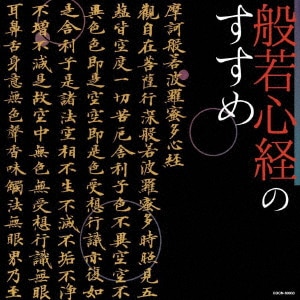 般若心経の
すすめ
摩訶般若波羅蜜多心経
觀自在菩薩行深般若波羅蜜多時照見五
蘊皆空度一切苦厄舎利子色不異空空不
異色色即是空空即是色受想行識亦復如
是舎利子是諸法空相不生不滅不垢不淨
不増不減是故空中無色無受想行識無眼
耳鼻舌身意無色聲香味觸法無眼界乃至